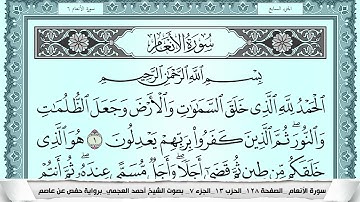 سورة الأنعام ٦
الجزء السابع
سُورَةُ الْأَنْعَامِ
بِسْمِ اللَّهِ الرَّحْمَٰنِ الرَّحِيمِ
الْحَمْدُ لِلَّهِ الَّذِي خَلَقَ السَّمَٰوَٰتِ وَالْأَرْضَ وَجَعَلَ الظُّلُمَٰتِ
وَالنُّورَ ثُمَّ الَّذِينَ كَفَرُوا بِرَبِّهِمْ يَعْدِلُونَ ١ هُوَ الَّذِي
خَلَقَكُم مِّن طِينٍ ثُمَّ قَضَىٰٓ أَجَلًا وَأَجَلٌ مُّسَمًّى عِندَهُۥ ثُمَّ أَنتُمْ
سورة الأنعام_ الصفحة ١٢٨_ الحزب ١٣_ الجزء ٧_ بصوت الشيخ أحمد العجمي_ برواية حفص عن عاصم